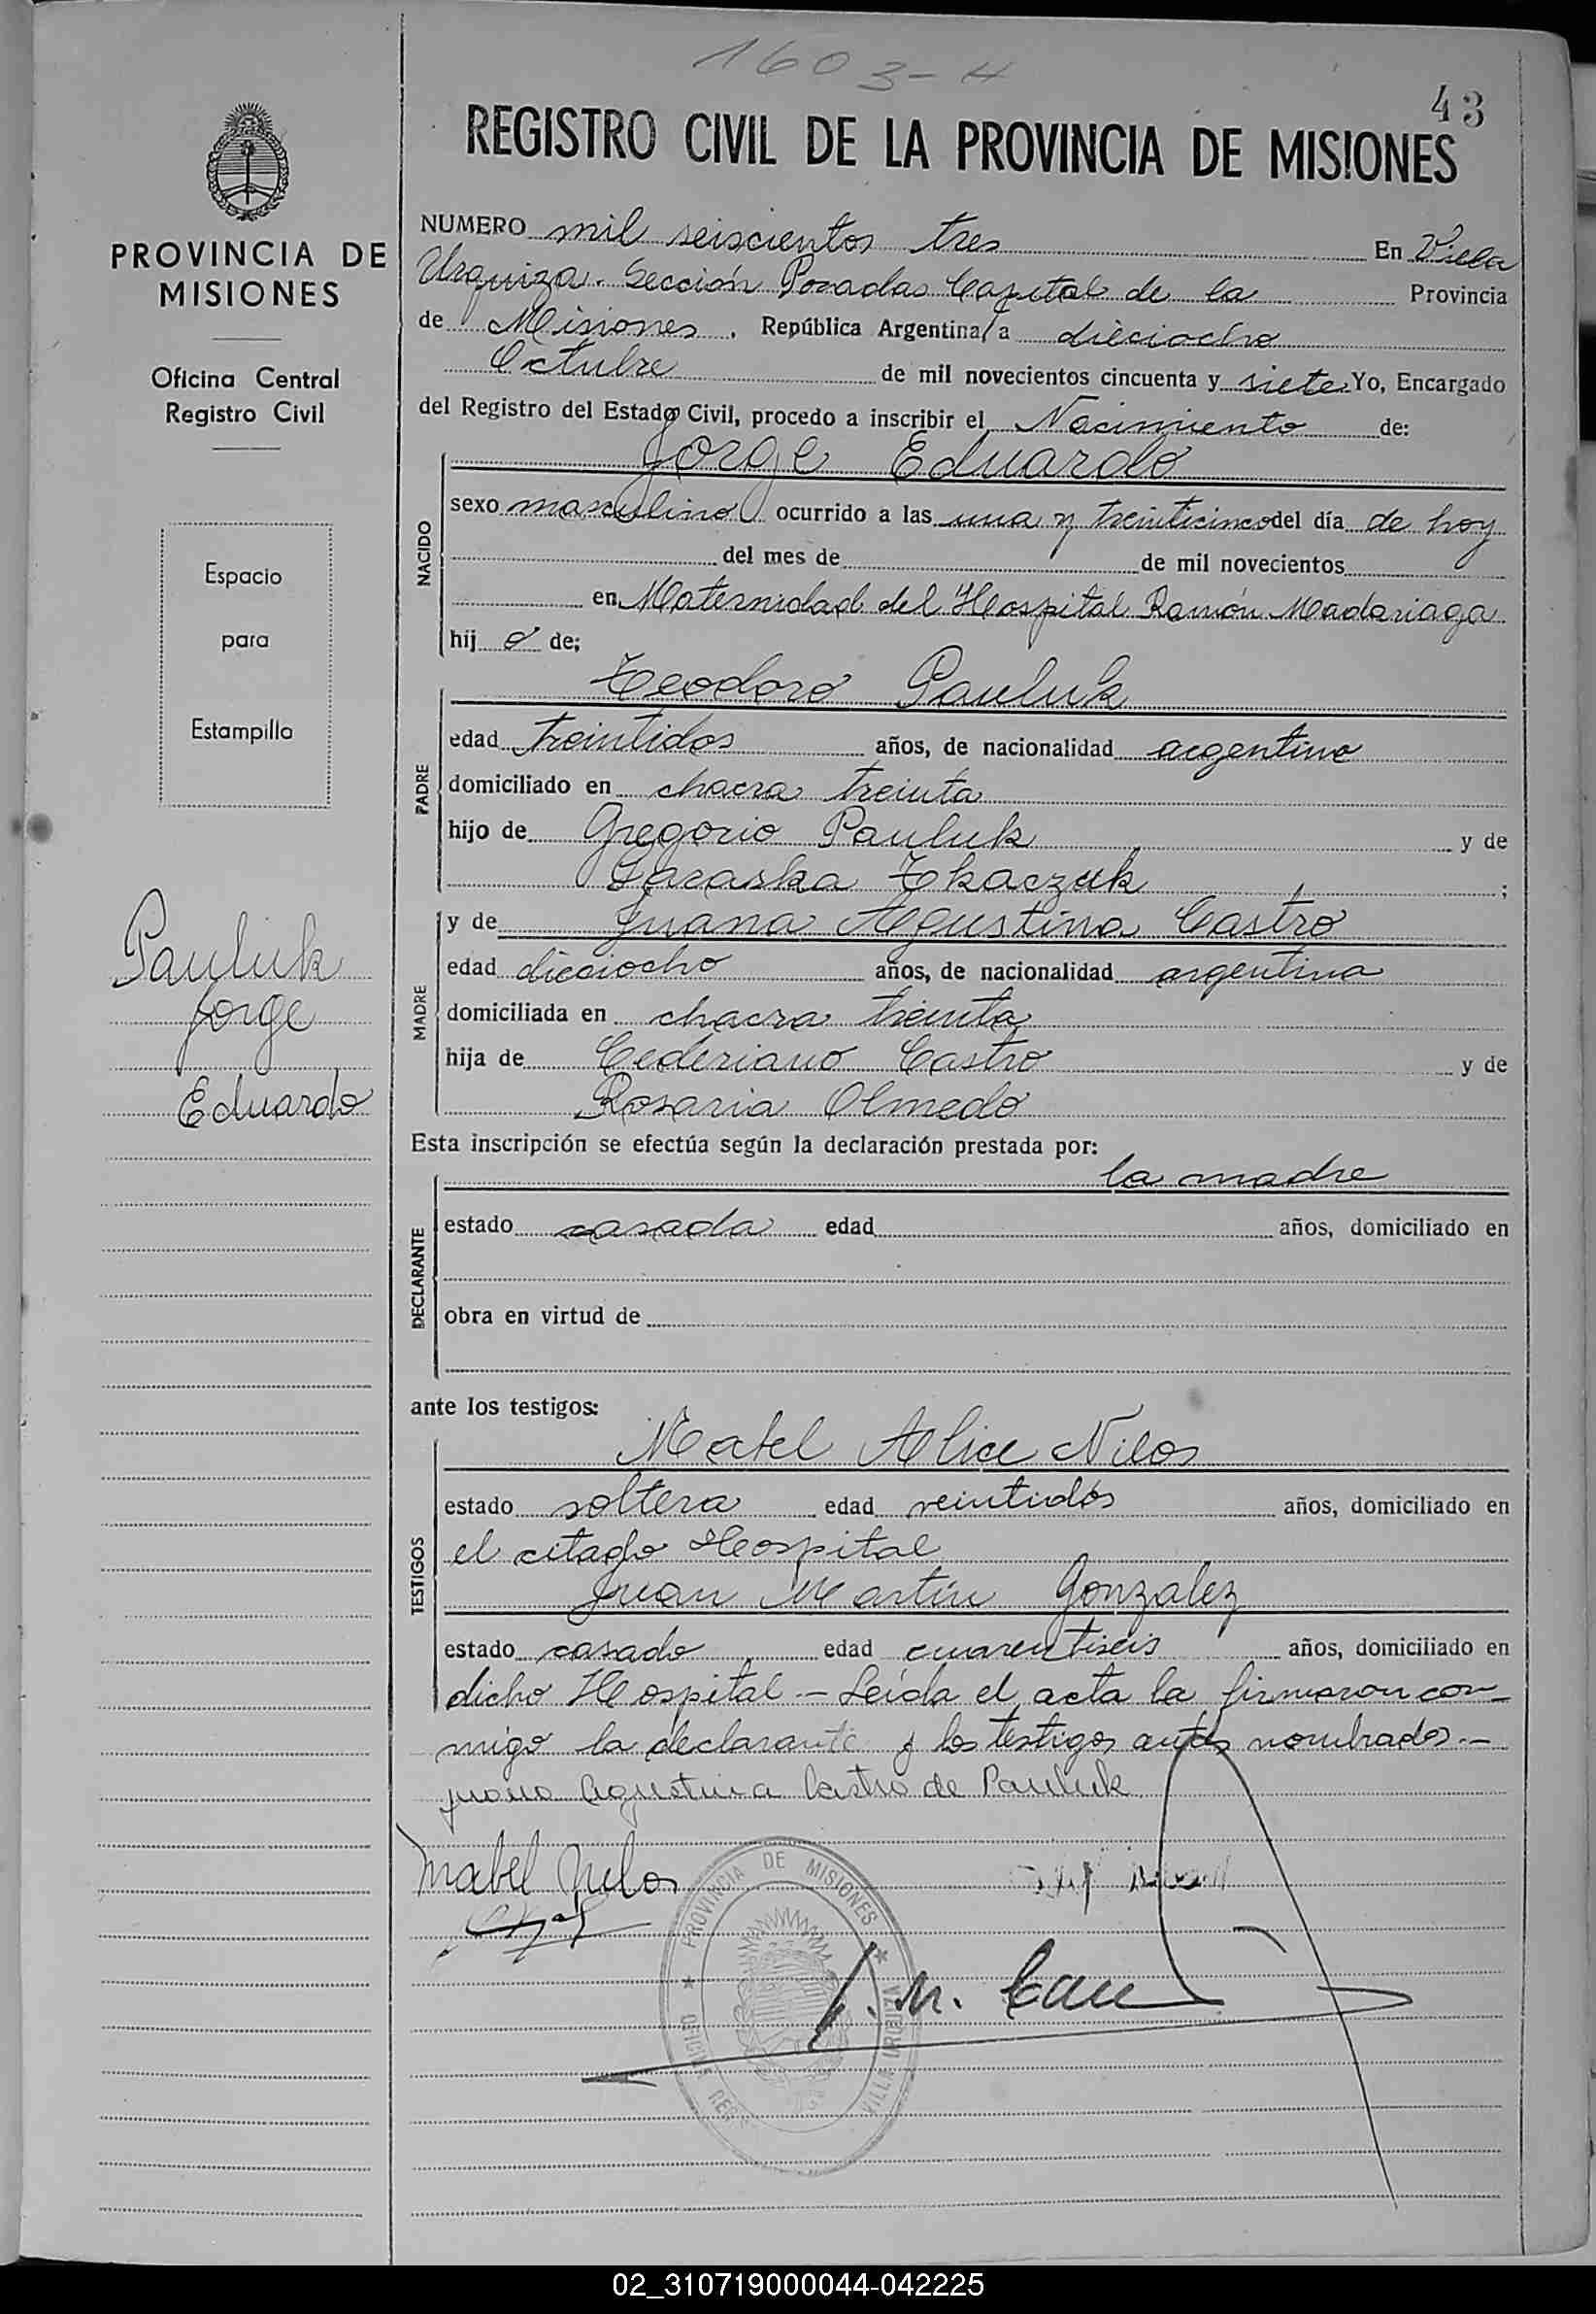 1603-4
43
REGISTRO CIVIL DE LA PROVINCIA DE MISIONES
PROVINCIA DE
MISIONES
Oficina Central
Registro Civil
Espacio
para
Estampilla
Pauluk
Jorge
Eduardo
NUMERO mil seiscientos tres En Villa
Urquiza. Sección Posadas Capital de la Provincia
de Misiones, República Argentina, a dieciocho
Octubre de mil novecientos cincuenta y siete Yo, Encargado
del Registro del Estado Civil, procedo a inscribir el Nacimiento de:
Jorge Eduardo
NACIDO
sexo masculino ocurrido a las una y treinticinco del día de hoy
del mes de de mil novecientos
en Maternidad del Hospital Ramón Madariaga
hij o de;
Teodoro Pauluk
PADRE
edad treintidos años, de nacionalidad argentino
domiciliado en chacra treinta
hijo de Gregorio Pauluk y de
Paraska Tkaczuk ;
y de Juana Agustina Castro
MADRE
edad dieciocho años, de nacionalidad argentina
domiciliada en chacra treinta
hija de Cederiano Castro y de
Rosaria Olmedo
Esta inscripción se efectúa según la declaración prestada por:
la madre
DECLARANTE
estado casada edad años, domiciliado en
obra en virtud de
ante los testigos:
Mabel Alice Nilos
TESTIGOS
estado soltera edad veintidós años, domiciliado en
el citado Hospital
Juan Martín Gonzalez
estado casado edad cuarentiseis años, domiciliado en
dicho Hospital - Leída el acta la firmaron con-
migo la declarante y los testigos antes nombrados.-
Juana Agustina Castro de Pauluk
Mabel Nilos
PROVINCIA DE MISIONES
VILLA URQUIZA
02_310719000044-042225